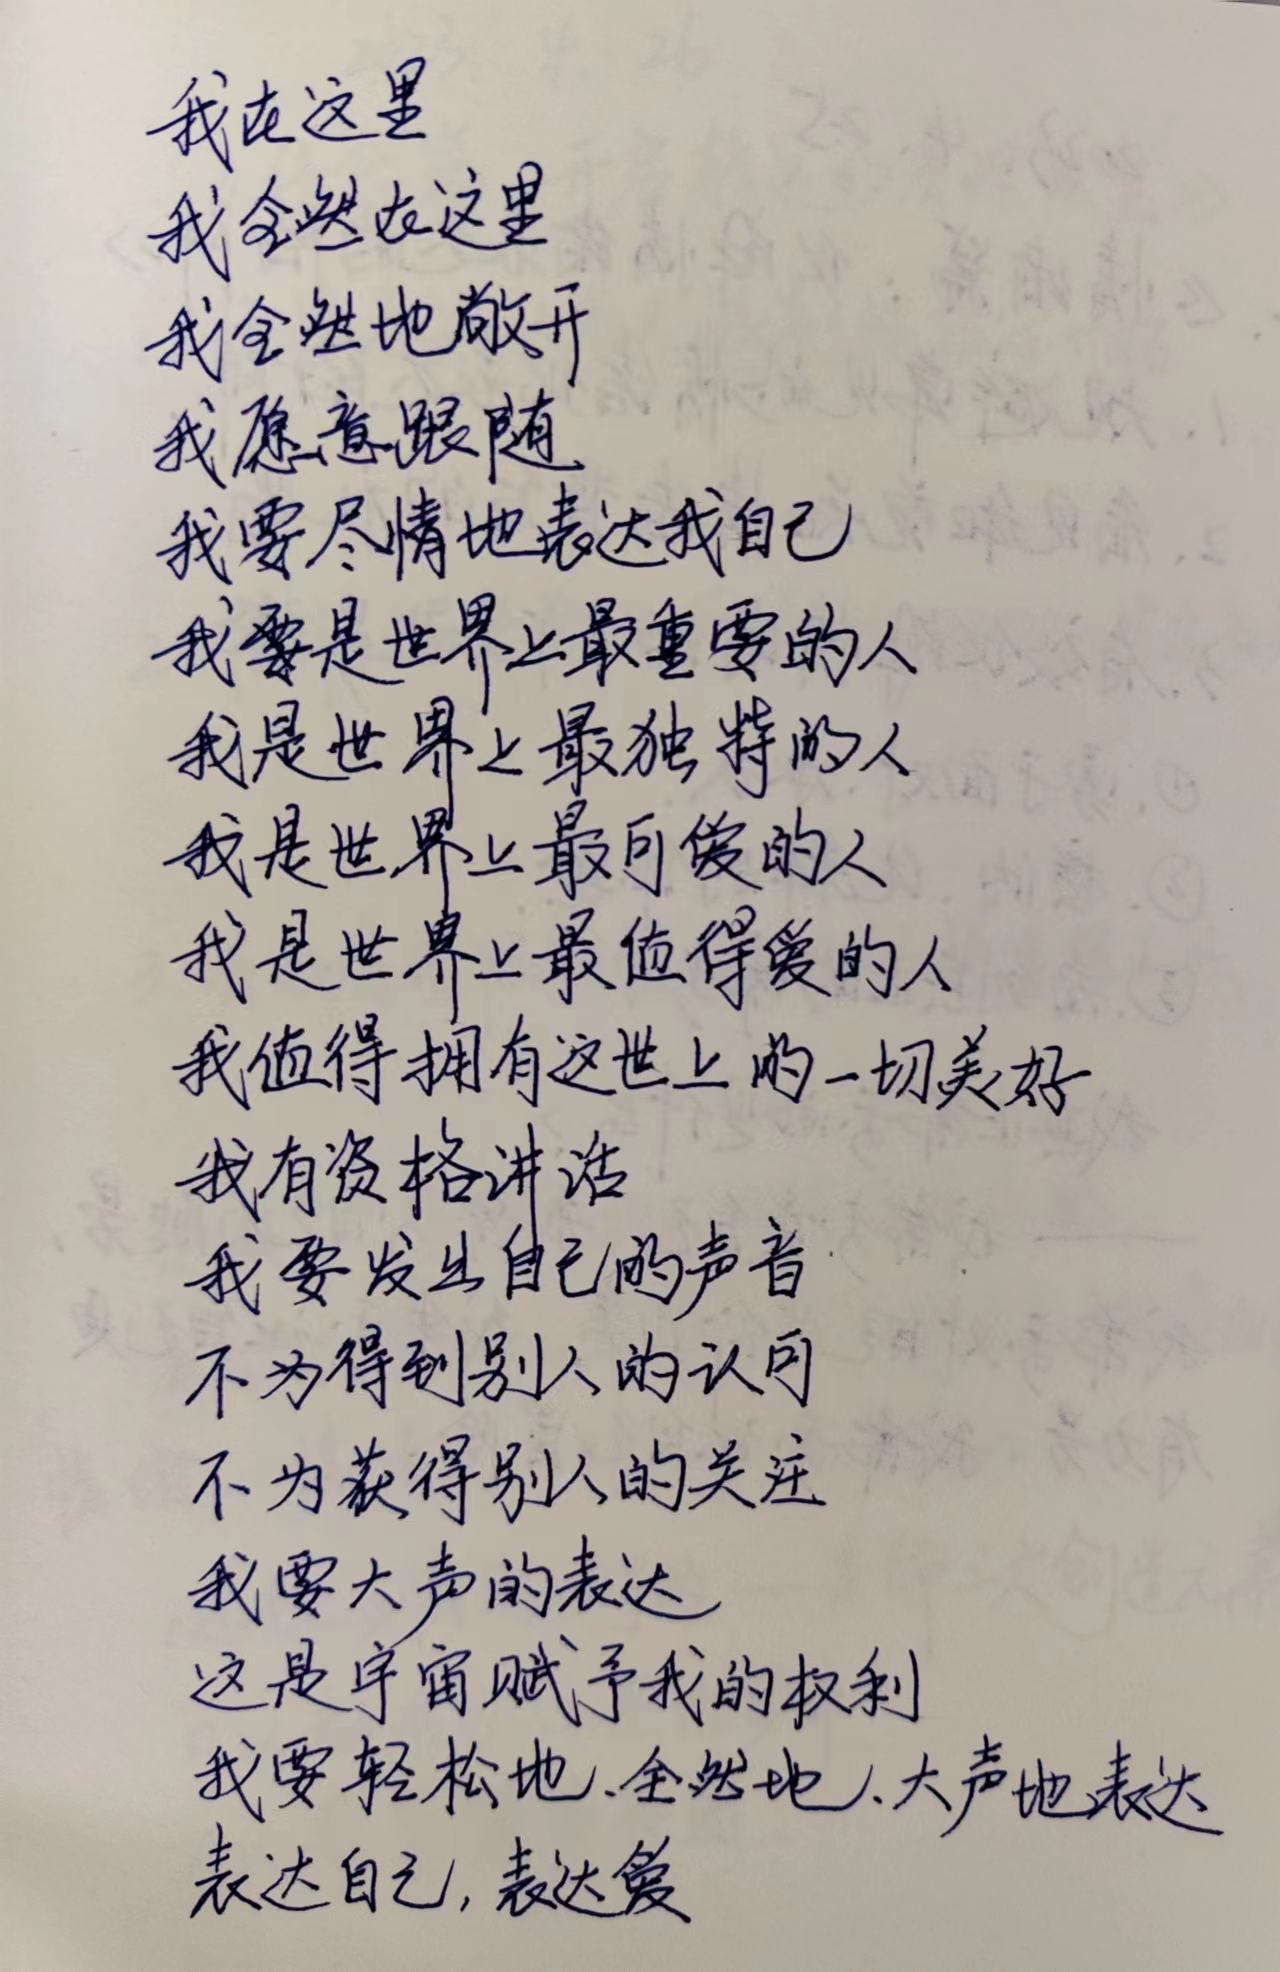 我在这里
我全然在这里
我全然地敞开
我愿意跟随
我要尽情地表达我自己
我要是世界上最重要的人
我是世界上最独特的人
我是世界上最可爱的人
我是世界上最值得爱的人
我值得拥有这世上的一切美好
我有资格讲话
我要发出自己的声音
不为得到别人的认可
不为获得别人的关注
我要大声的表达
这是宇宙赋予我的权利
我要轻松地、全然地、大声地表达
表达自己,表达爱